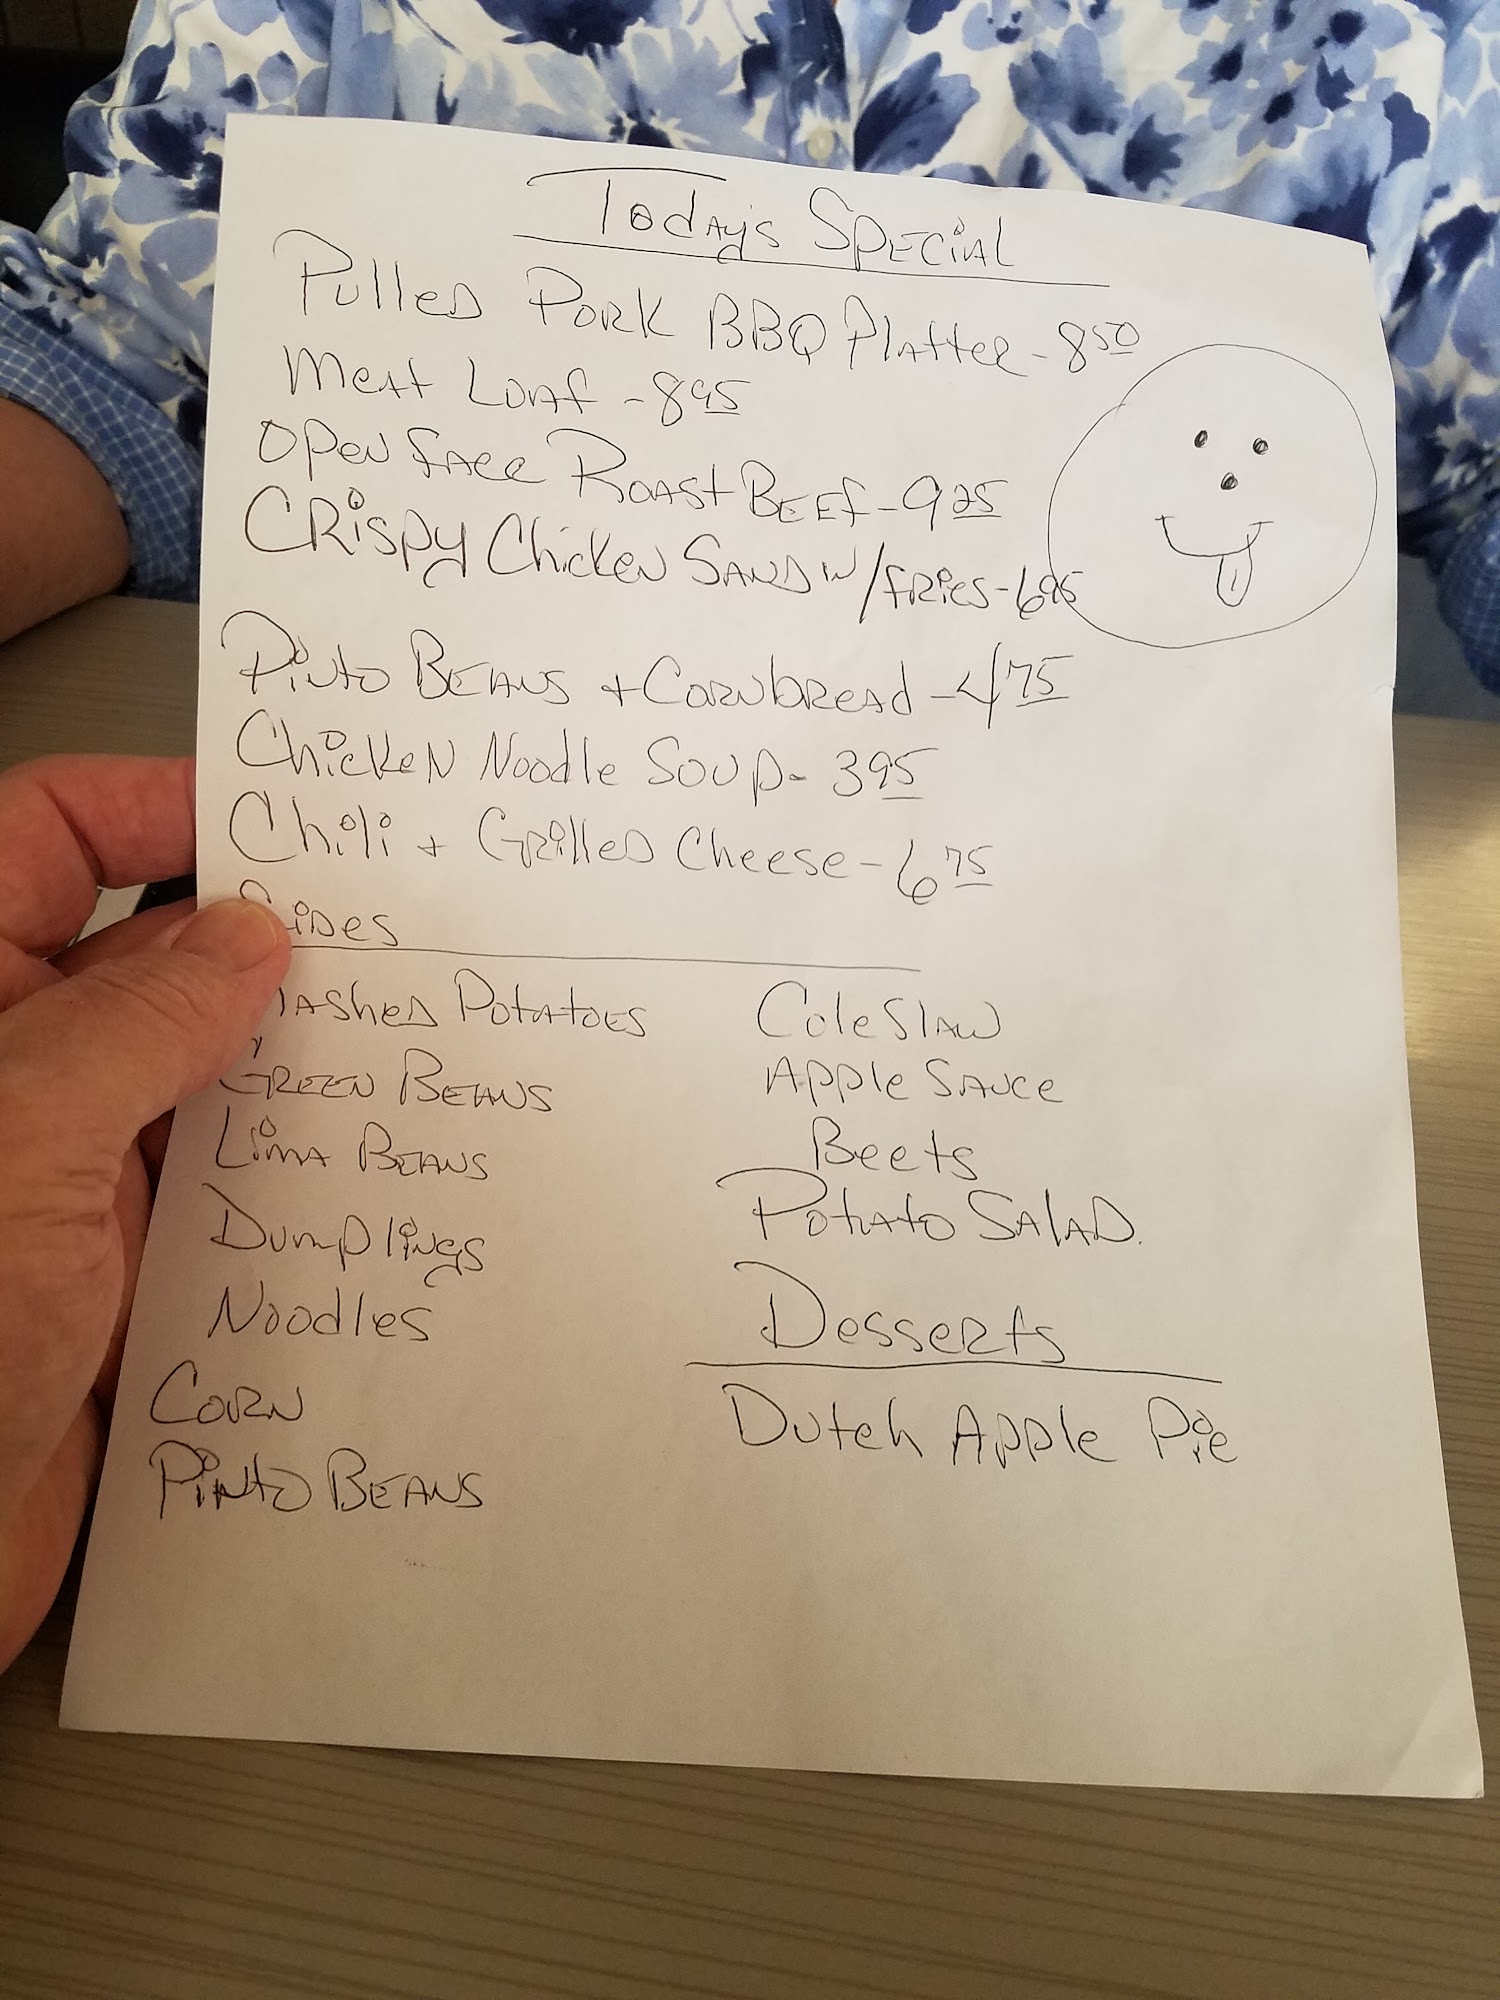 Today's Special
Pulled Pork BBQ Platter - 8 50
Meat Loaf - 8 95
Open Face Roast Beef - 9 25
Crispy Chicken Sand w/fries - 6 95
Pinto Beans + Cornbread - 4 75
Chicken Noodle Soup - 3 95
Chili + Grilled Cheese - 6 75
Sides
Mashed Potatoes
Green Beans
Lima Beans
Dumplings
Noodles
Corn
Pinto Beans
Cole Slaw
Apple Sauce
Beets
Potato Salad.
Desserts
Dutch Apple Pie